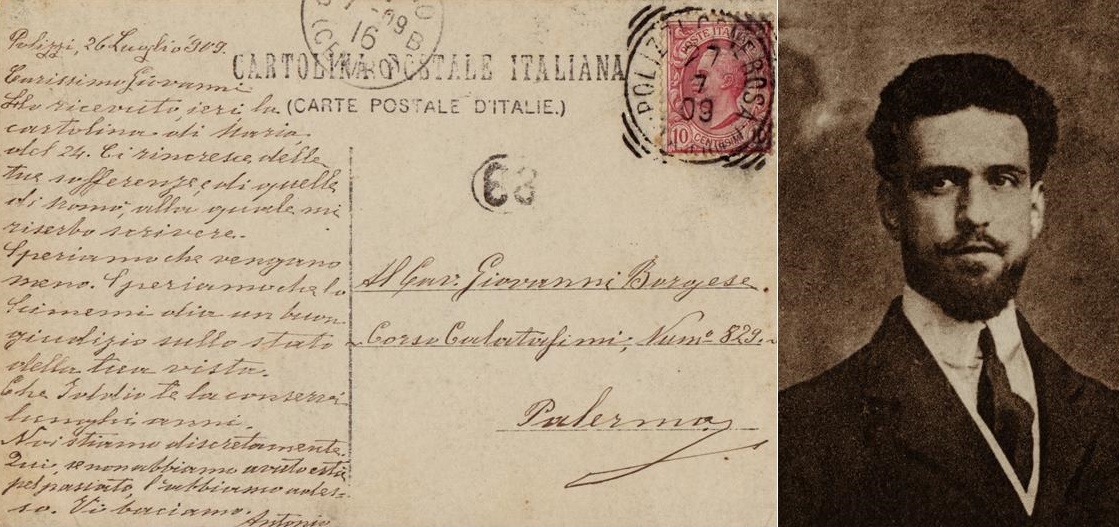 Polizzi, 26 Luglio 909.
Carissimo Giovanni
Ho ricevuto, ieri la
cartolina di Maria
del 24. Ci rincresce, delle
tue sofferenze, e di quelle
di , alla quale mi
riserbo scrivere.
Speriamo che vengano
meno. Speriamo che lo
dia un buon
giudizio sullo stato
della tua vista.
Che Iddio te la conservi
lunghi anni.
Noi stiamo discretamente.
Qui, se non abbiamo avuto està
pel passato, l'abbiamo ades-
so. Vi baciamo.
Antonio
09
16
CARTOLINA POSTALE ITALIANA
(CARTE POSTALE D'ITALIE.)
POSTE ITALIANE
10 CENTESIMI 10
POLIZZI GENEROSA
7
7
09
63
Al Cav. Giovanni Borgese
Corso Calatafimi, Num° 829.
Palermo